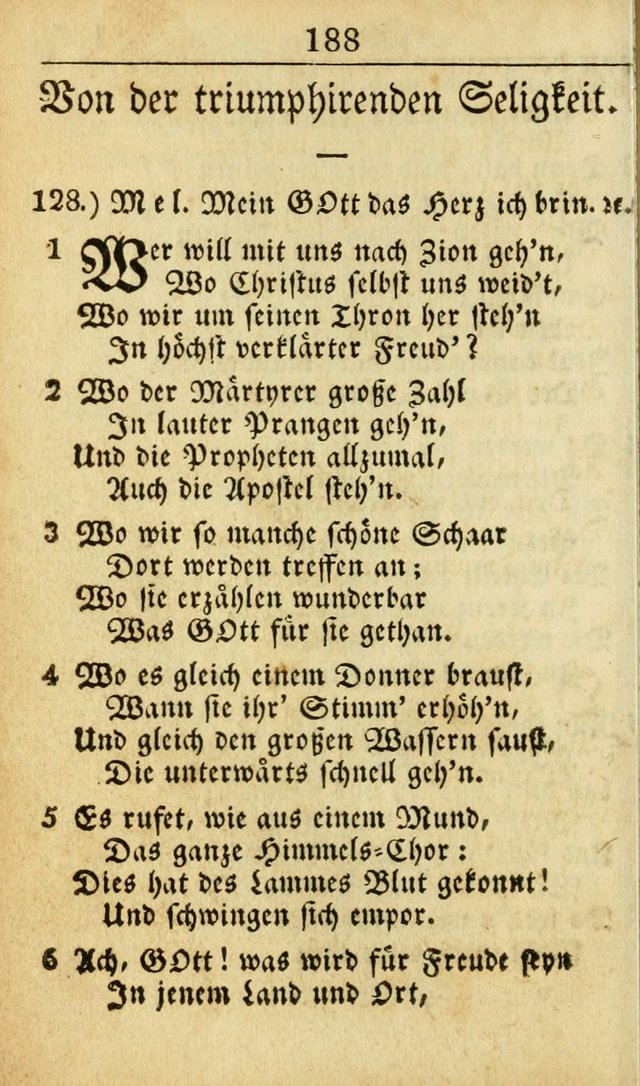 188
Von der triumphirenden Seligkeit.
128.) Mel. Mein GOtt das Herz ich brin. ꝛc.
1 Wer will mit uns nach Zion geh'n,
Wo Christus selbst uns weid't,
Wo wir um seinen Thron her steh'n
In höchst verklärter Freud'?
2 Wo der Märtyrer große Zahl
In lauter Prangen geh'n,
Und die Propheten allzumal,
Auch die Apostel steh'n.
3 Wo wir so manche schöne Schaar
Dort werden treffen an;
Wo sie erzählen wunderbar
Was GOtt für sie gethan.
4 Wo es gleich einem Donner braust,
Wann sie ihr' Stimm' erhöh'n,
Und gleich den großen Wassern saust,
Die unterwärts schnell geh'n.
5 Es rufet, wie aus einem Mund,
Das ganze Himmels-Chor:
Dies hat des Lammes Blut gekonnt!
Und schwingen sich empor.
6 Ach, GOtt! was wird für Freude seyn
In jenem Land und Ort,